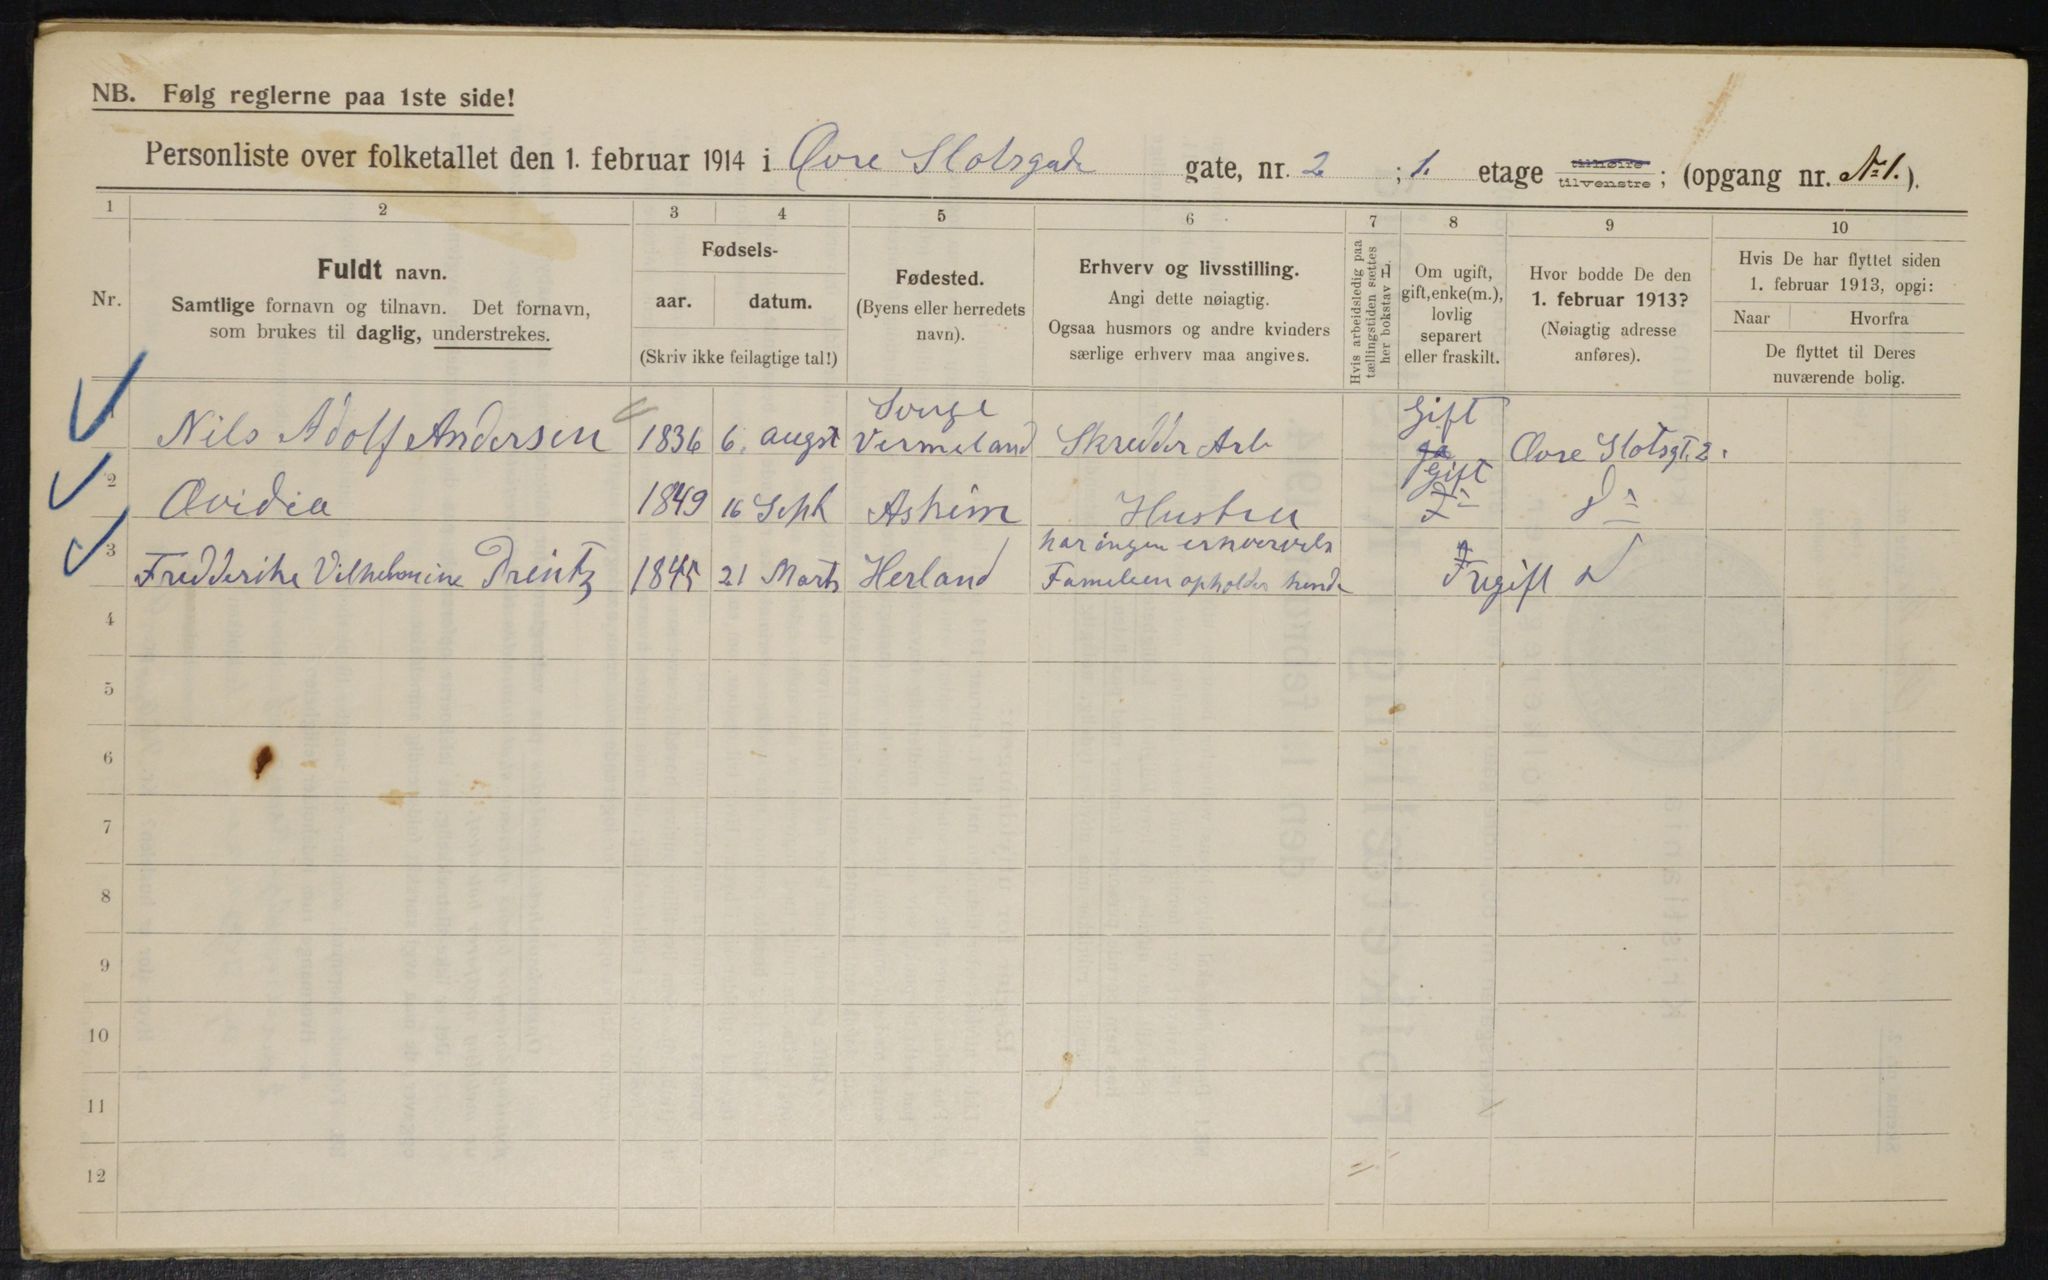 NB. Følg reglerne paa 1ste side!
Personliste over folketallet den 1. februar 1914 i Øvre Slotsgade gate, nr. 2 ; 1. etage tilhøire tilvenstre; (opgang nr. №1.).
1 2 3 4 5 6 7 8 9 10
Nr.
Fuldt navn.
Samtlige fornavn og tilnavn. Det fornavn,
som brukes til daglig, understrekes.
Fødsels-
aar. datum.
(Skriv ikke feilagtige tal!)
Fødested.
(Byens eller herredets
navn).
Erhverv og livsstilling.
Angi dette nøiagtig.
Ogsaa husmors og andre kvinders
særlige erhverv maa angives.
Hvis arbeidsledig paa
tællingstiden sættes
her bokstav H.
Om ugift,
gift, enke(m.),
lovlig
separert
eller fraskilt.
Hvor bodde De den
1. februar 1913?
(Nøiagtig adresse
anføres).
Hvis De har flyttet siden
1. februar 1913, opgi:
Naar Hvorfra
De flyttet til Deres
nuværende bolig.
Sverge Gift
1 Nils Adolf Andersen 1836 6. augst Vermeland Skredder Arb Øvre Slotsgt. 2.
Gift
2 Ovidia 1849 16 Sept Askim Hustru D
har ingen
3 Fredderike Vilhelmine Preintz 1845 21 Marts Herland Familien opholder hende Ugift D
4
5
6
7
8
9
10
11
12